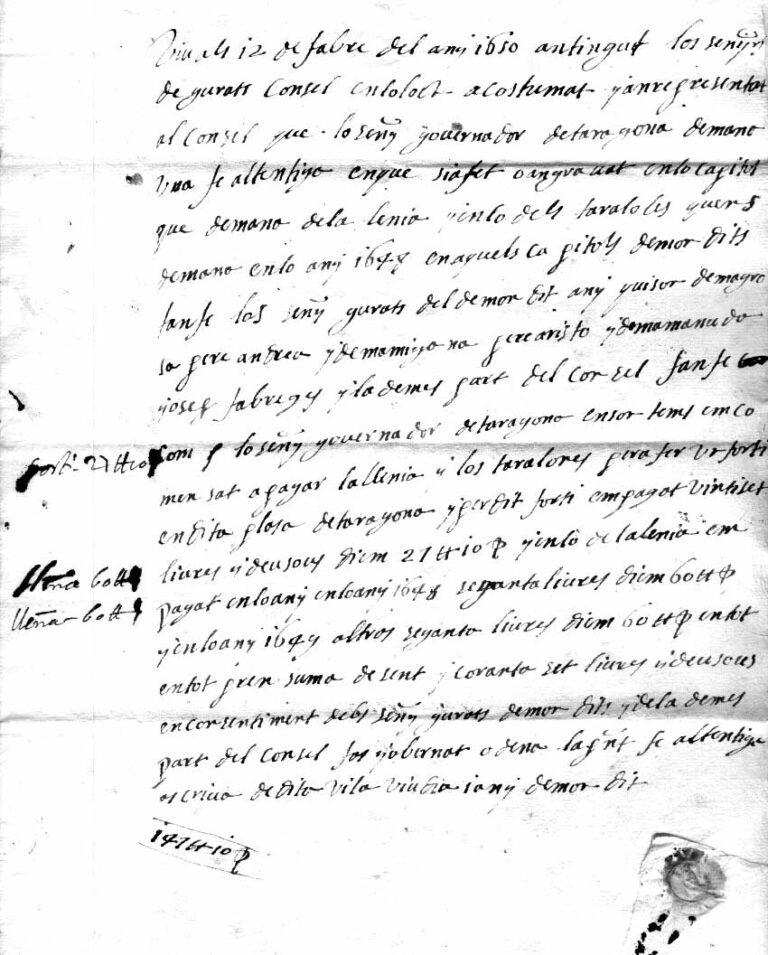 Viu als 12 de fabre del any 1650 antingut los señy
de gurats Consel enloloct acostumat yanrepresentat
al Consel que lo señy governador detaragona demana
una fe altentiga enque siafet oangravat enlo capitol
que demana dela lenia yenlo dels taraloles quers
demana enlo any 1648 enaquels capitols demor dits
fanfe los señy gurats del demor dit any guisor demagro
sa pere andreu ydemamiga na perearisto ydemamanudo
yosep fabreges ylademes part del Consel fanfe
com lo señy governador detaragona ensor tems emco
forti 27 tt 10
mensat apagar lallenia y los taralones perafer un forti
endita plasa detaragona yperdit forti empagat vintiset
liures ydeusous diem 27 tt 10 yenlo delalenia em
llena 60 tt
pagat enloany enloany 1648 seyantaliures diem 60 tt
lleña 60 tt
yenloany 1649 altros seyanta liures diem 60 tt entot
entot pren suma desent ycoranta set liures ydeusous
enconsentiment dels señy yurats demor dits ydela demes
part del Consel fos gobernat odena lapnt fe altentiga
escriua dedita vila vuidia iany demor dit
147 tt 10